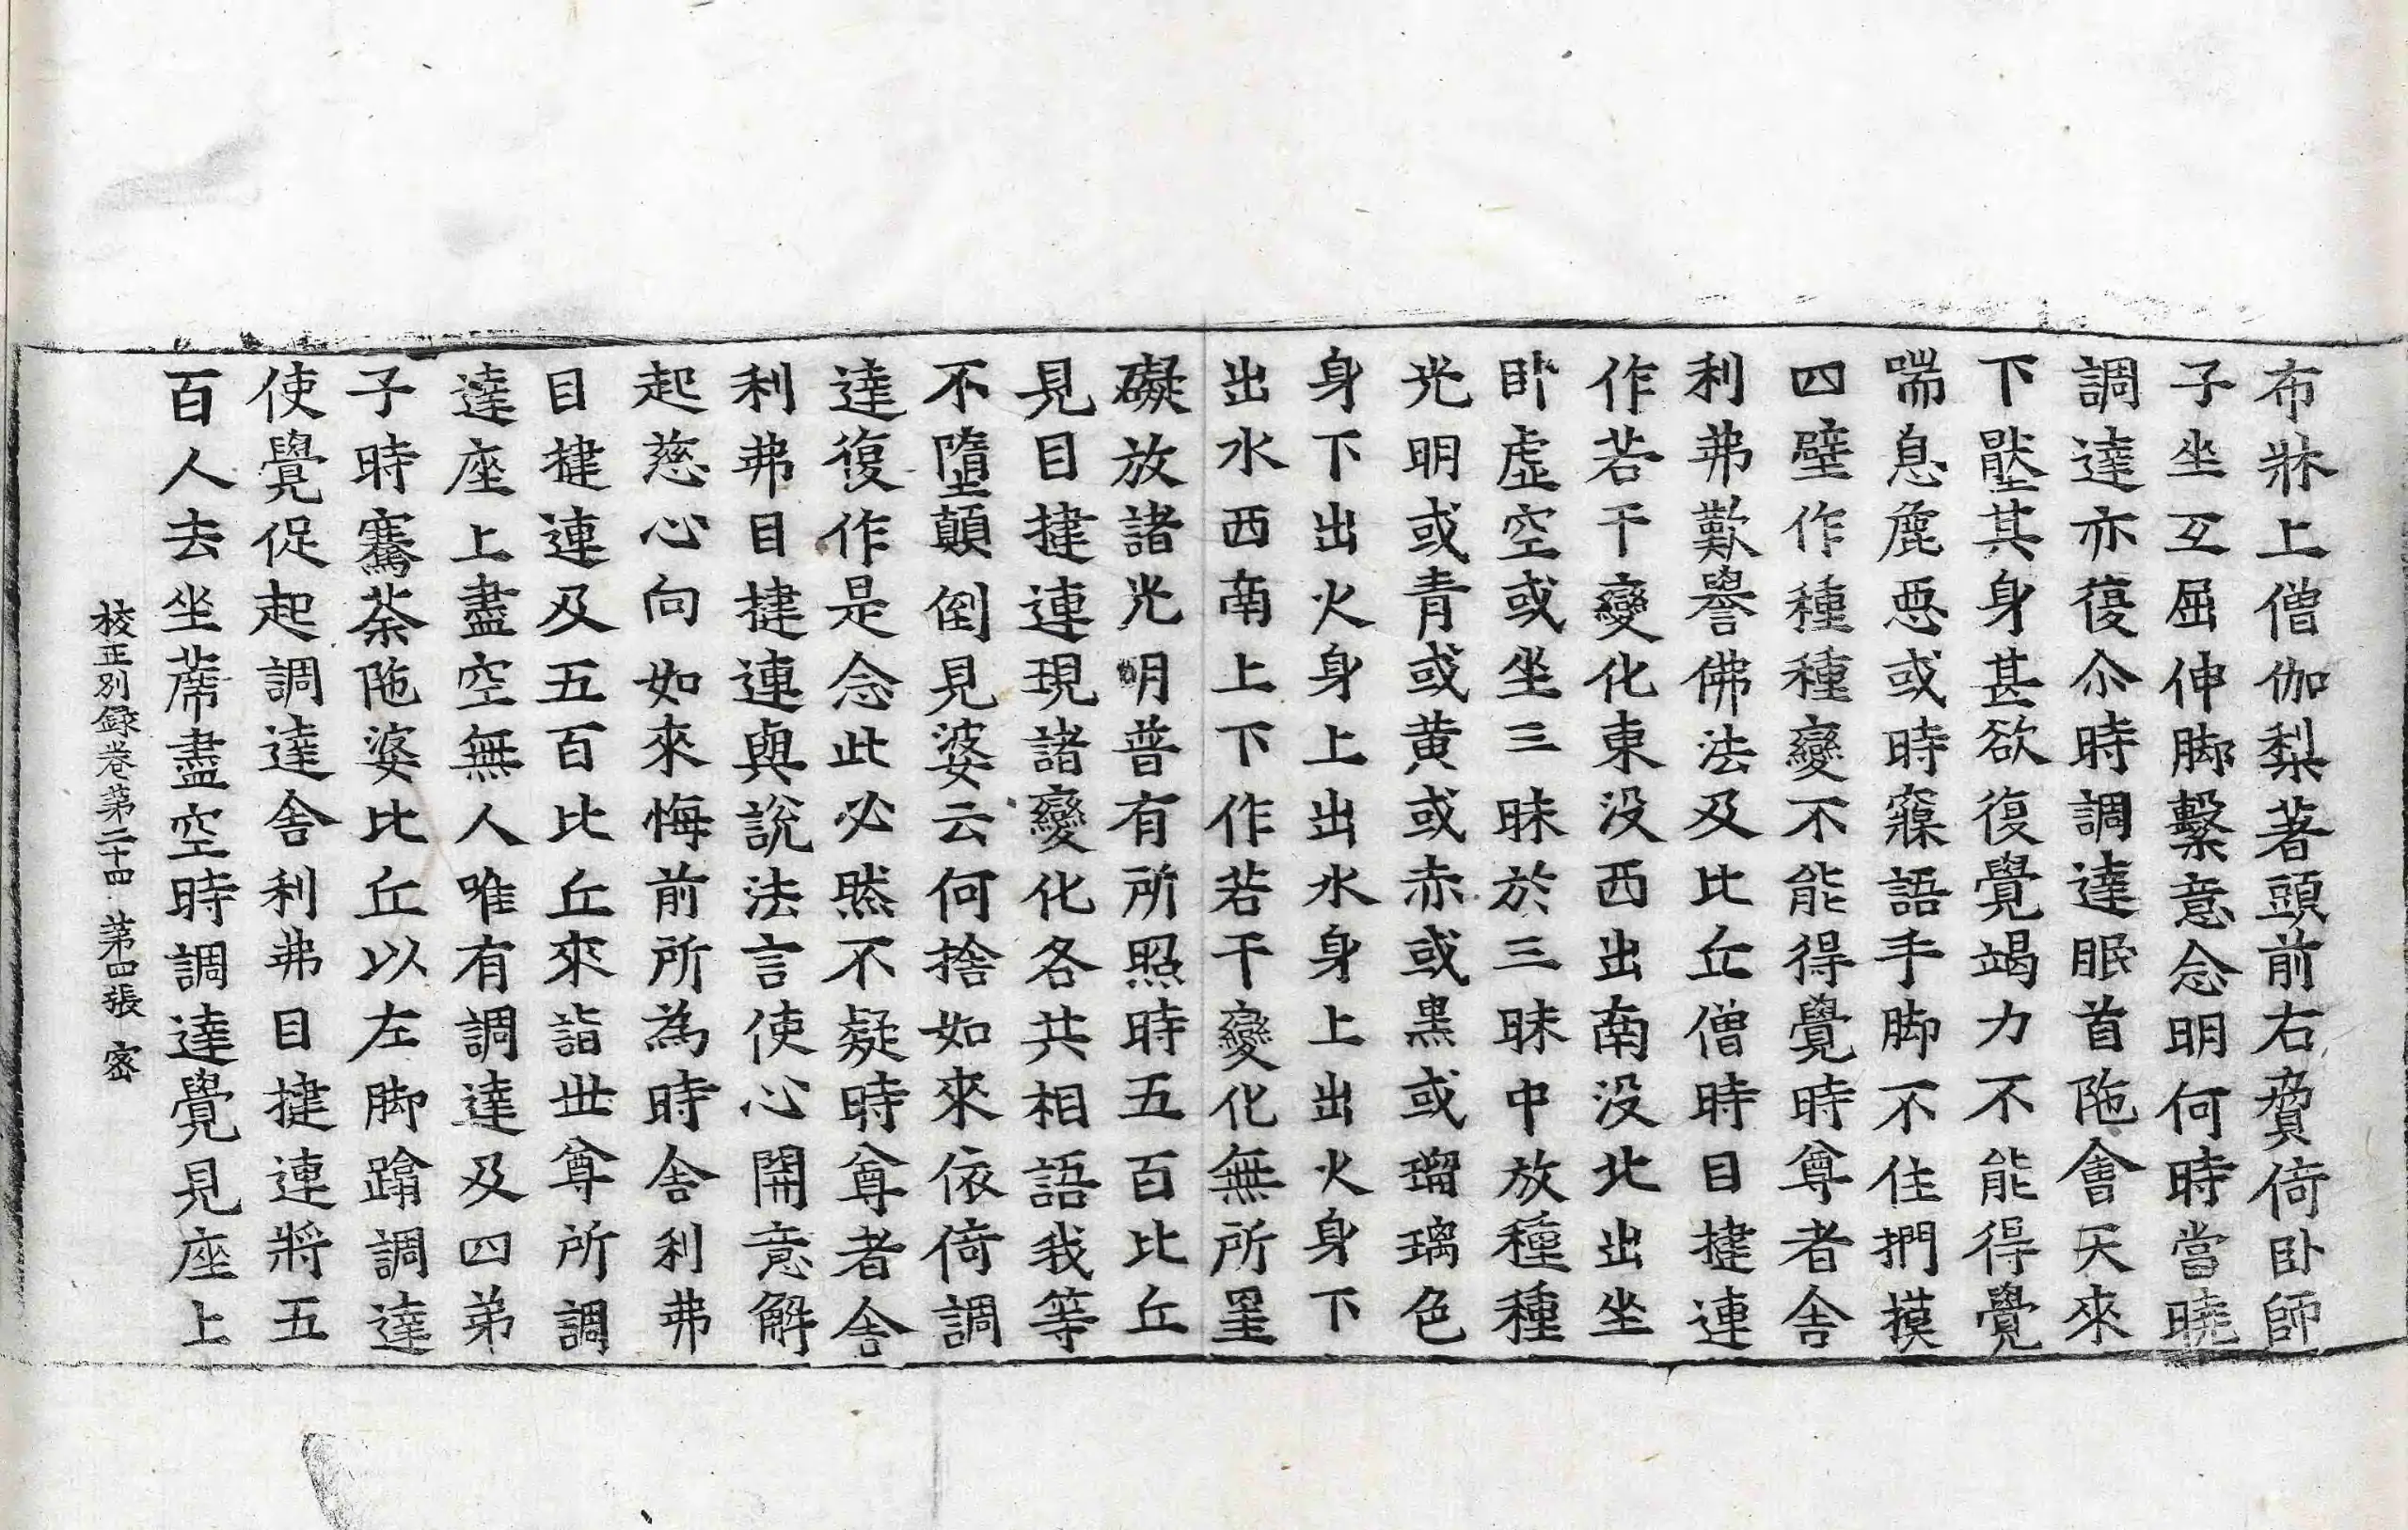 布牀上僧伽梨著頭前右脅倚卧師
子坐互屈伸脚繫意念明何時當曉
調達亦復尒時調達眠首陁會天來
下壓其身甚欲復覺竭力不能得覺
喘息麁惡或時寱語手脚不住捫摸
四壁作種種變不能得覺時尊者舍
利弗歎譽佛法及比丘僧時目揵連
作若干變化東没西出南没北出坐
卧虛空或坐三昧於三昧中放種種
光明或青或黄或赤或黒或瑠璃色
身下出火身上出水身上出火身下
出水西南上下作若干變化無所罣
礙放諸光明普有所照時五百比丘
見目揵連現諸變化各共相語我等
不墮顛倒見婆云何捨如來依倚調
達復作是念此必然不疑時尊者舍
利弗目揵連與說法言使心開意解
起慈心向如來悔前所為時舍利弗
目揵連及五百比丘來詣世尊所調
達座上盡空無人唯有調達及四弟
子時騫荼陁婆比丘以左脚蹹調達
使覺促起調達舍利弗目揵連將五
百人去坐蓆盡空時調達覺見座上
校正別録卷第二十四 第四張 宻